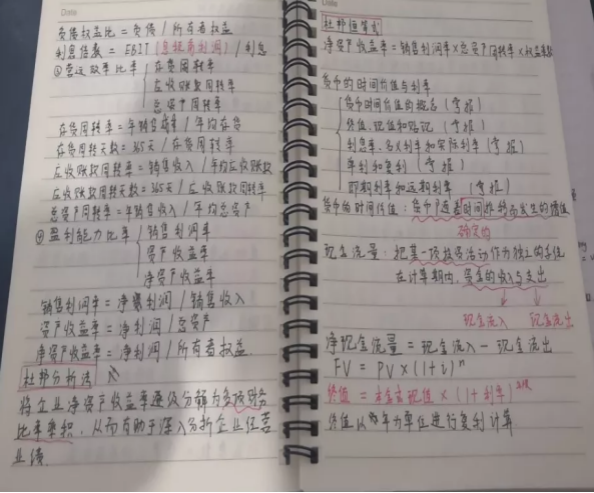 负债权益比 = 负债 / 所有者权益
利息倍数 = EBIT (息税前利润) / 利息
③营运效率比率 存货周转率
应收账款周转率
总资产周转率
存货周转率 = 年销售成本 / 年均存货
存货周转天数 = 365天 / 存货周转率
应收账款周转率 = 销售收入 / 年均应收账款
应收账款周转天数 = 365天 / 应收账款周转率
总资产周转率 = 年销售收入 / 年均总资产
④盈利能力比率 销售利润率
资产收益率
净资产收益率
销售利润率 = 净利润 / 销售收入
资产收益率 = 净利润 / 总资产
净资产收益率 = 净利润 / 所有者权益
杜邦分析法
将企业净资产收益率逐级分解为多项财务
比率乘积，从而有助于深入分析企业经营
业绩.
Date
杜邦恒等式
净资产收益率 = 销售利润率×总资产周转率×权益乘数
货币的时间价值与利率
货币时间价值的概念 (掌握)
终值、现值和贴现 (掌握)
利息率、名义利率和实际利率 (掌握)
单利和复利 (掌握)
即期利率和远期利率 (掌握)
货币的时间价值：货币随着时间推移而发生的增值
现金流量：把某一项投资活动作为独立的系统
在计算期内，资金的收入与支出
现金流入 现金流出
净现金流量 = 现金流入 - 现金流出
FV = PV × (1+i)ⁿ
终值 = 现值 × (1+利率)
终值以年为单位进行复利计算